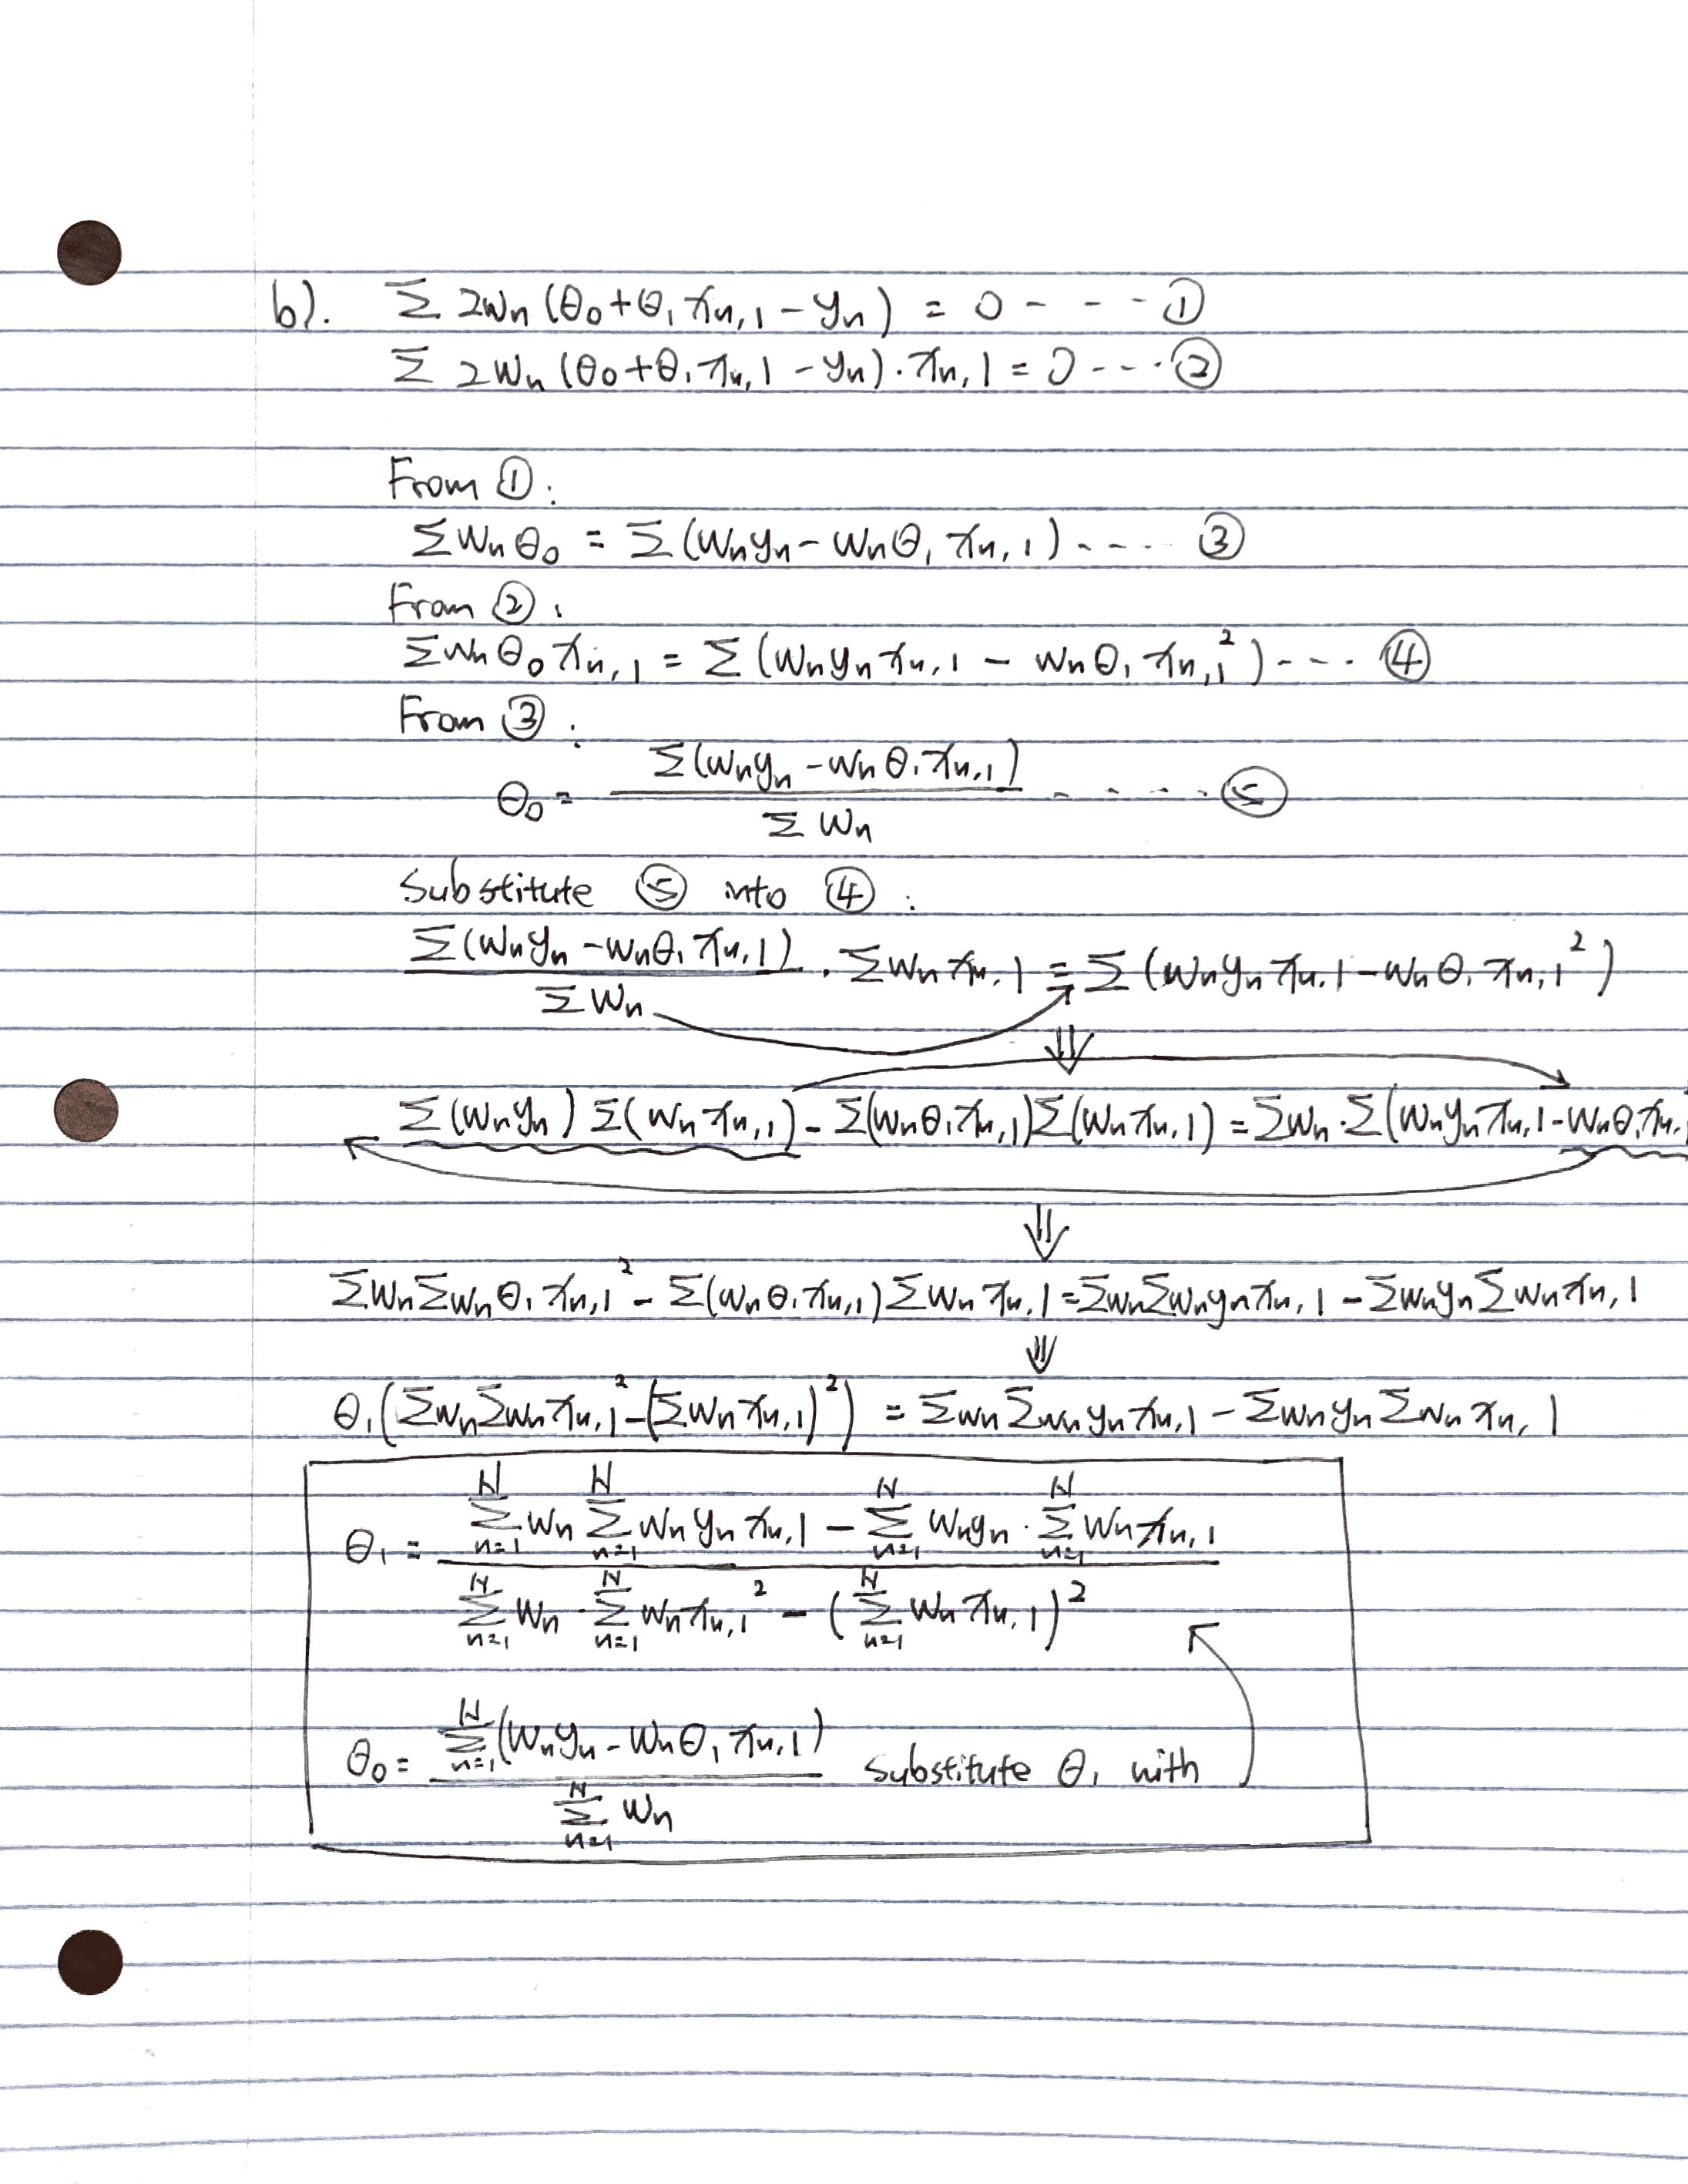 b). Σ 2wn (θ0+θ1 xn,1 − yn) = 0 - - - ①
Σ 2wn (θ0+θ1 xn,1 − yn) · xn,1 = 0 - - - ②
From ①:
Σ wn θ0 = Σ (wn yn − wn θ1 xn,1) - - - - ③
From ②:
Σ wn θ0 xn,1 = Σ (wn yn xn,1 − wn θ1 xn,1²) - - - ④
From ③:
θ0 = Σ(wn yn − wn θ1 xn,1) / Σ wn - - - - - ⑤
Substitute ⑤ into ④:
Σ(wn yn − wn θ1 xn,1) / Σ wn · Σ wn xn,1 = Σ (wn yn xn,1 − wn θ1 xn,1²)
⇓
Σ (wn yn) Σ(wn xn,1) − Σ(wn θ1 xn,1) Σ(wn xn,1) = Σwn · Σ(wn yn xn,1 − wn θ1 xn,
⇓
Σwn Σwn θ1 xn,1² − Σ(wn θ1 xn,1) Σwn xn,1 = Σwn Σwn yn xn,1 − Σwn yn Σwn xn,1
⇓
θ1 (Σwn Σwn xn,1² − (Σwn xn,1)²) = Σwn Σwn yn xn,1 − Σwn yn Σwn xn,1
θ1 = (Σ_{n=1}^{N} wn Σ_{n=1}^{N} wn yn xn,1 − Σ_{n=1}^{N} wn yn · Σ_{n=1}^{N} wn xn,1) / (Σ_{n=1}^{N} wn · Σ_{n=1}^{N} wn xn,1² − (Σ_{n=1}^{N} wn xn,1)²)
θ0 = Σ_{n=1}^{N} (wn yn − wn θ1 xn,1) / Σ_{n=1}^{N} wn substitute θ1 with